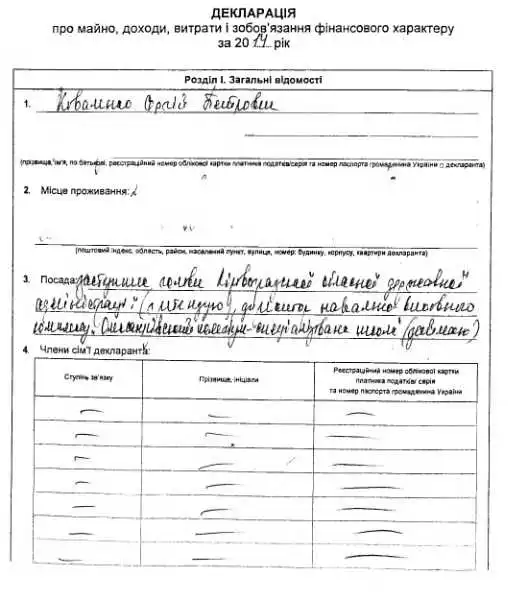 ДЕКЛАРАЦІЯ
про майно, доходи, витрати і зобов'язання фінансового характеру
за 2014 рік
Розділ I. Загальні відомості
1. Коваленко Сергій Петрович
(прізвище, ім'я, по батькові, реєстраційний номер облікової картки платника податків/серія та номер паспорта громадянина України – декларанта)
2. Місце проживання:
(поштовий індекс, область, район, населений пункт, вулиця, номер: будинку, корпусу, квартири декларанта)
3. Посада: заступник голови Кіровоградської обласної державної
адміністрації (претендую), директор навчально виховного
комплексу
4. Члени сім'ї декларанта:
Ступінь зв'язку
Прізвище, ініціали
Реєстраційний номер облікової картки
платника податків/ серія
та номер паспорта громадянина України